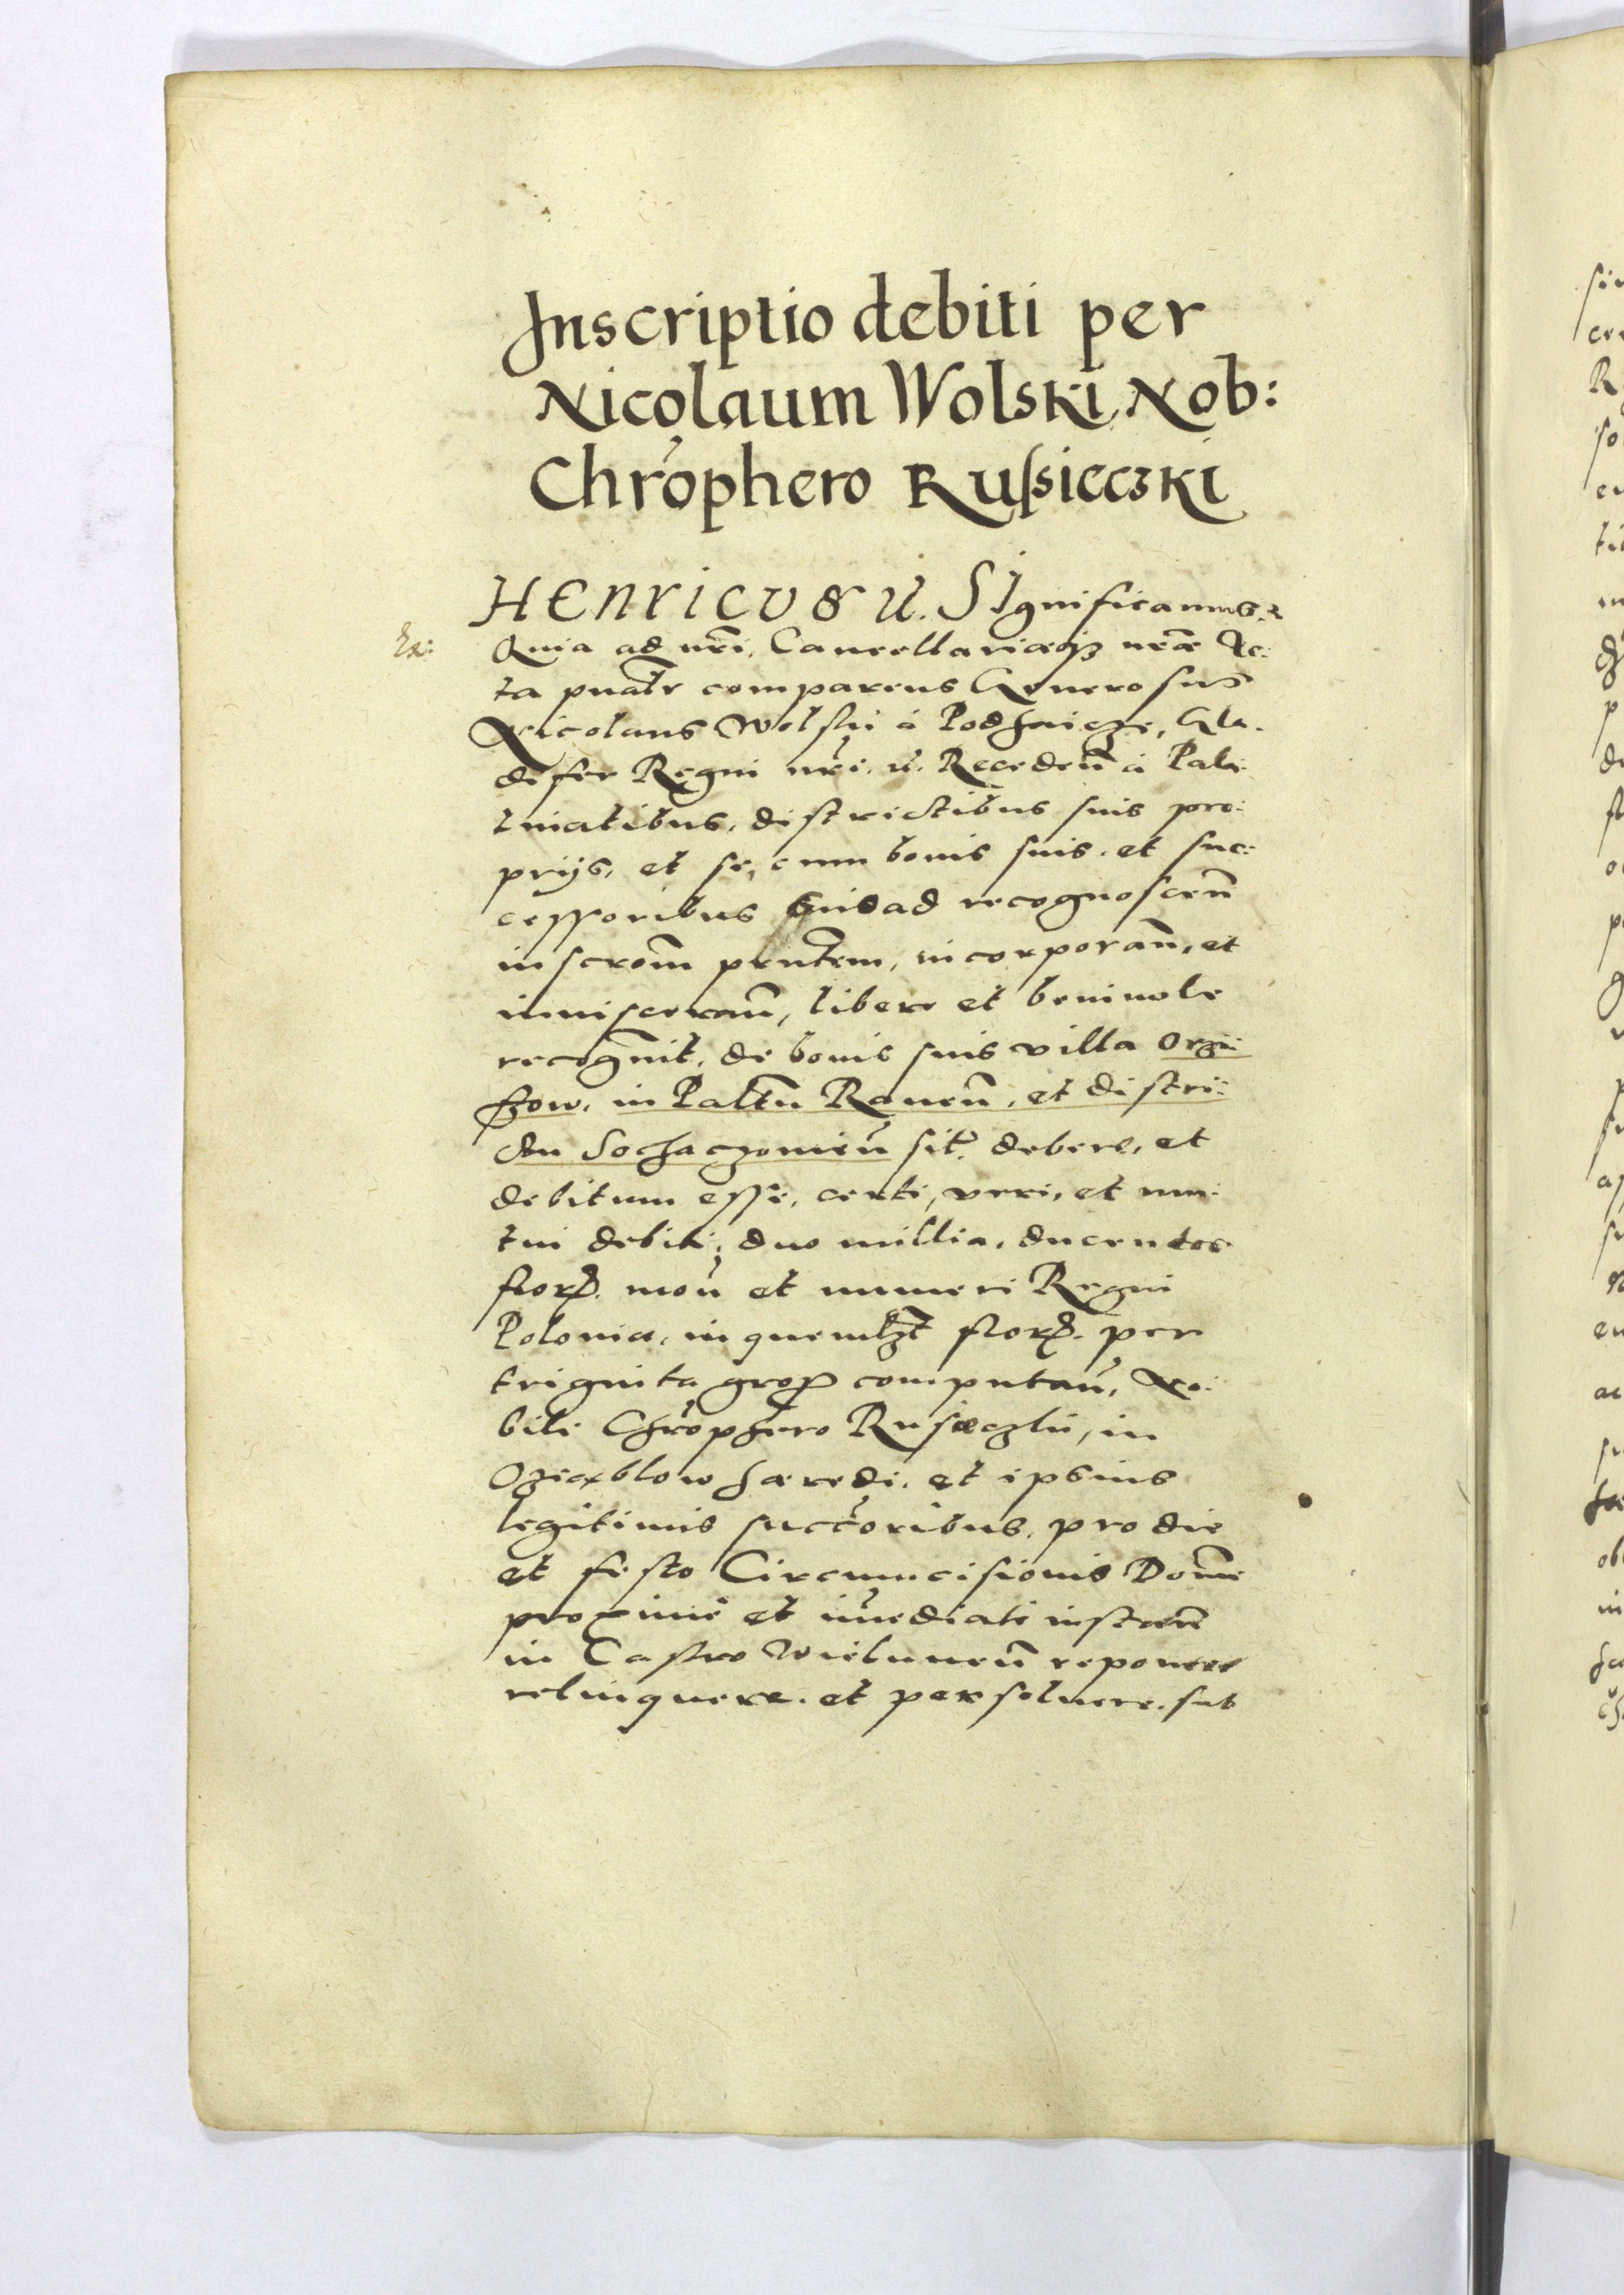 Inscriptio debiti per
Nicolaum Wolski, Nob:
Chrõphero Russieczki
HENRICVS &c. SIgnificamus &c
Ex:
Quia ad nr̃i, Cancellariæq; nr̃æ Ac:
ta pñalr̃ comparens Generosus
Nicolaus Wolski à Podhaicze, Gla:
difer Regni nr̃i &c. Receden̄ à Pala
tinatibus, districtibus suis pro:
prijs, et se, cum bonis suis, et suc:
cessoribus suis ad recognoscen̄
inscrom̃ prñtem, incorporan̄, et
inuisceran̄, libere et beniuole
recognouit, de bonis suis villa
in Paltũ Rauen̄, et distri:
ctu Sochaczouien̄ sit̃ debere, et
debitum esse, certi, veri, et mu:
tui debiti, duo millia, ducentos
flor̃. mon̄ et numeri Regni
Poloniæ, in quemlibet flor̃. per
triginta gros̃ computan̄, No:
bili Chrõphero Rusieczki, in
hæredi, et ipsius
legitimis succẽoribus, pro die
et festo Circumcisionis Domĩ
proxime et im̃ediate instan̄
in Castro Wielunen̄ reponere
relinquere, et persoluere, sub